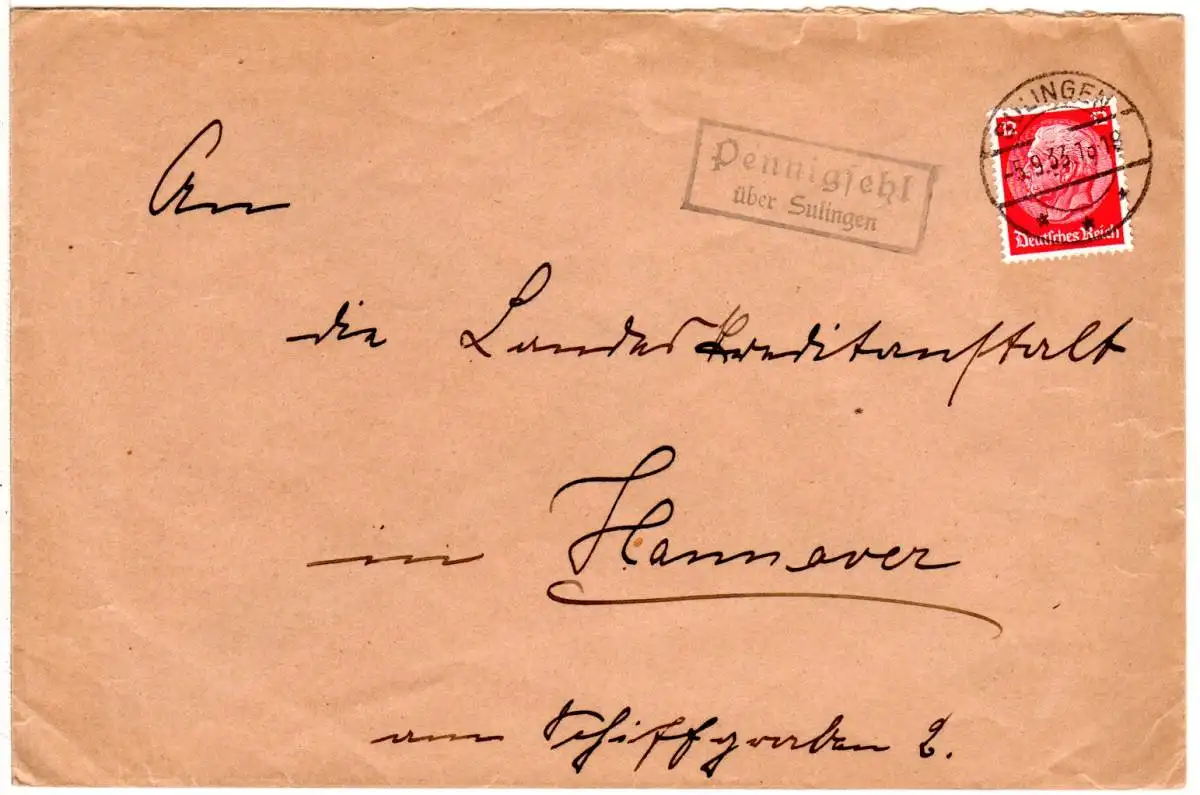 SULINGEN
-5.9.33.18-19
12 12
Deutsches Reich
Pennigsehl
über Sulingen
An
die Landeskreditanstalt
in Hannover
am Schiffgraben 2.